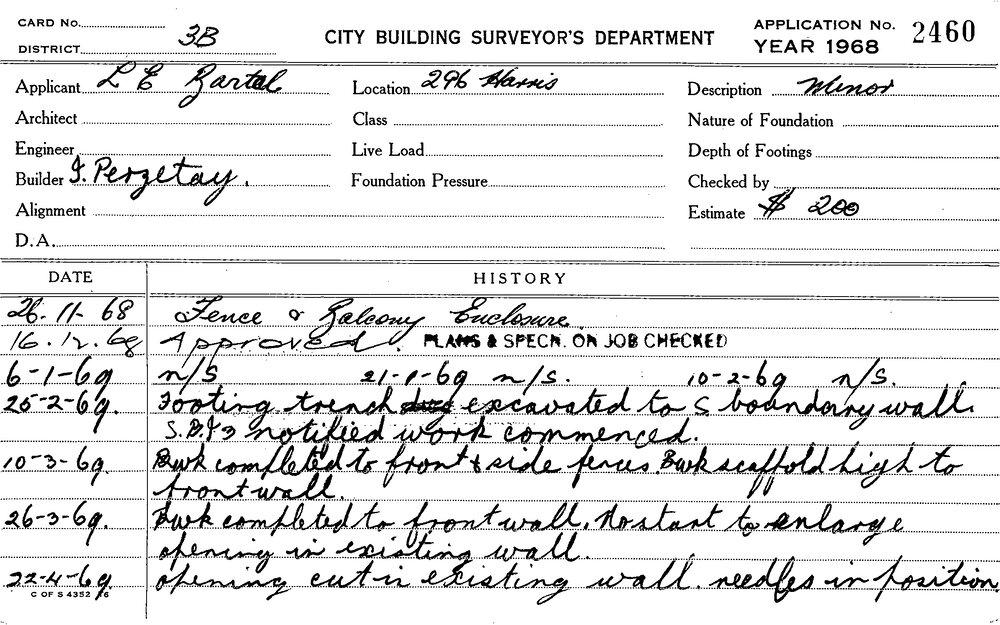 CARD No.
DISTRICT 3B
CITY BUILDING SURVEYOR'S DEPARTMENT
APPLICATION No. 2460
YEAR 1968
Applicant L E Bartal Location 296 Harris Description Minor
Architect Class Nature of Foundation
Engineer Live Load Depth of Footings
Builder J. Perzetay. Foundation Pressure Checked by
Alignment Estimate $ 200
D.A.
DATE HISTORY
26.11.68 Fence & Balcony Enclosure.
16.12.68 Approved. PLANS & SPECN. ON JOB CHECKED
6-1-69 n/S 21-1-69 n/S. 10-2-69 n/S.
25-2-69. Footing trench excavated to S boundary wall.
notified work commenced.
10-3-69. Bwk completed to front & side fences Bwk scaffold high to
front wall.
26-3-69. Bwk completed to front wall. No start to enlarge
opening in existing wall.
22-4-69 opening cut in existing wall. needles in position.
C OF S 4352